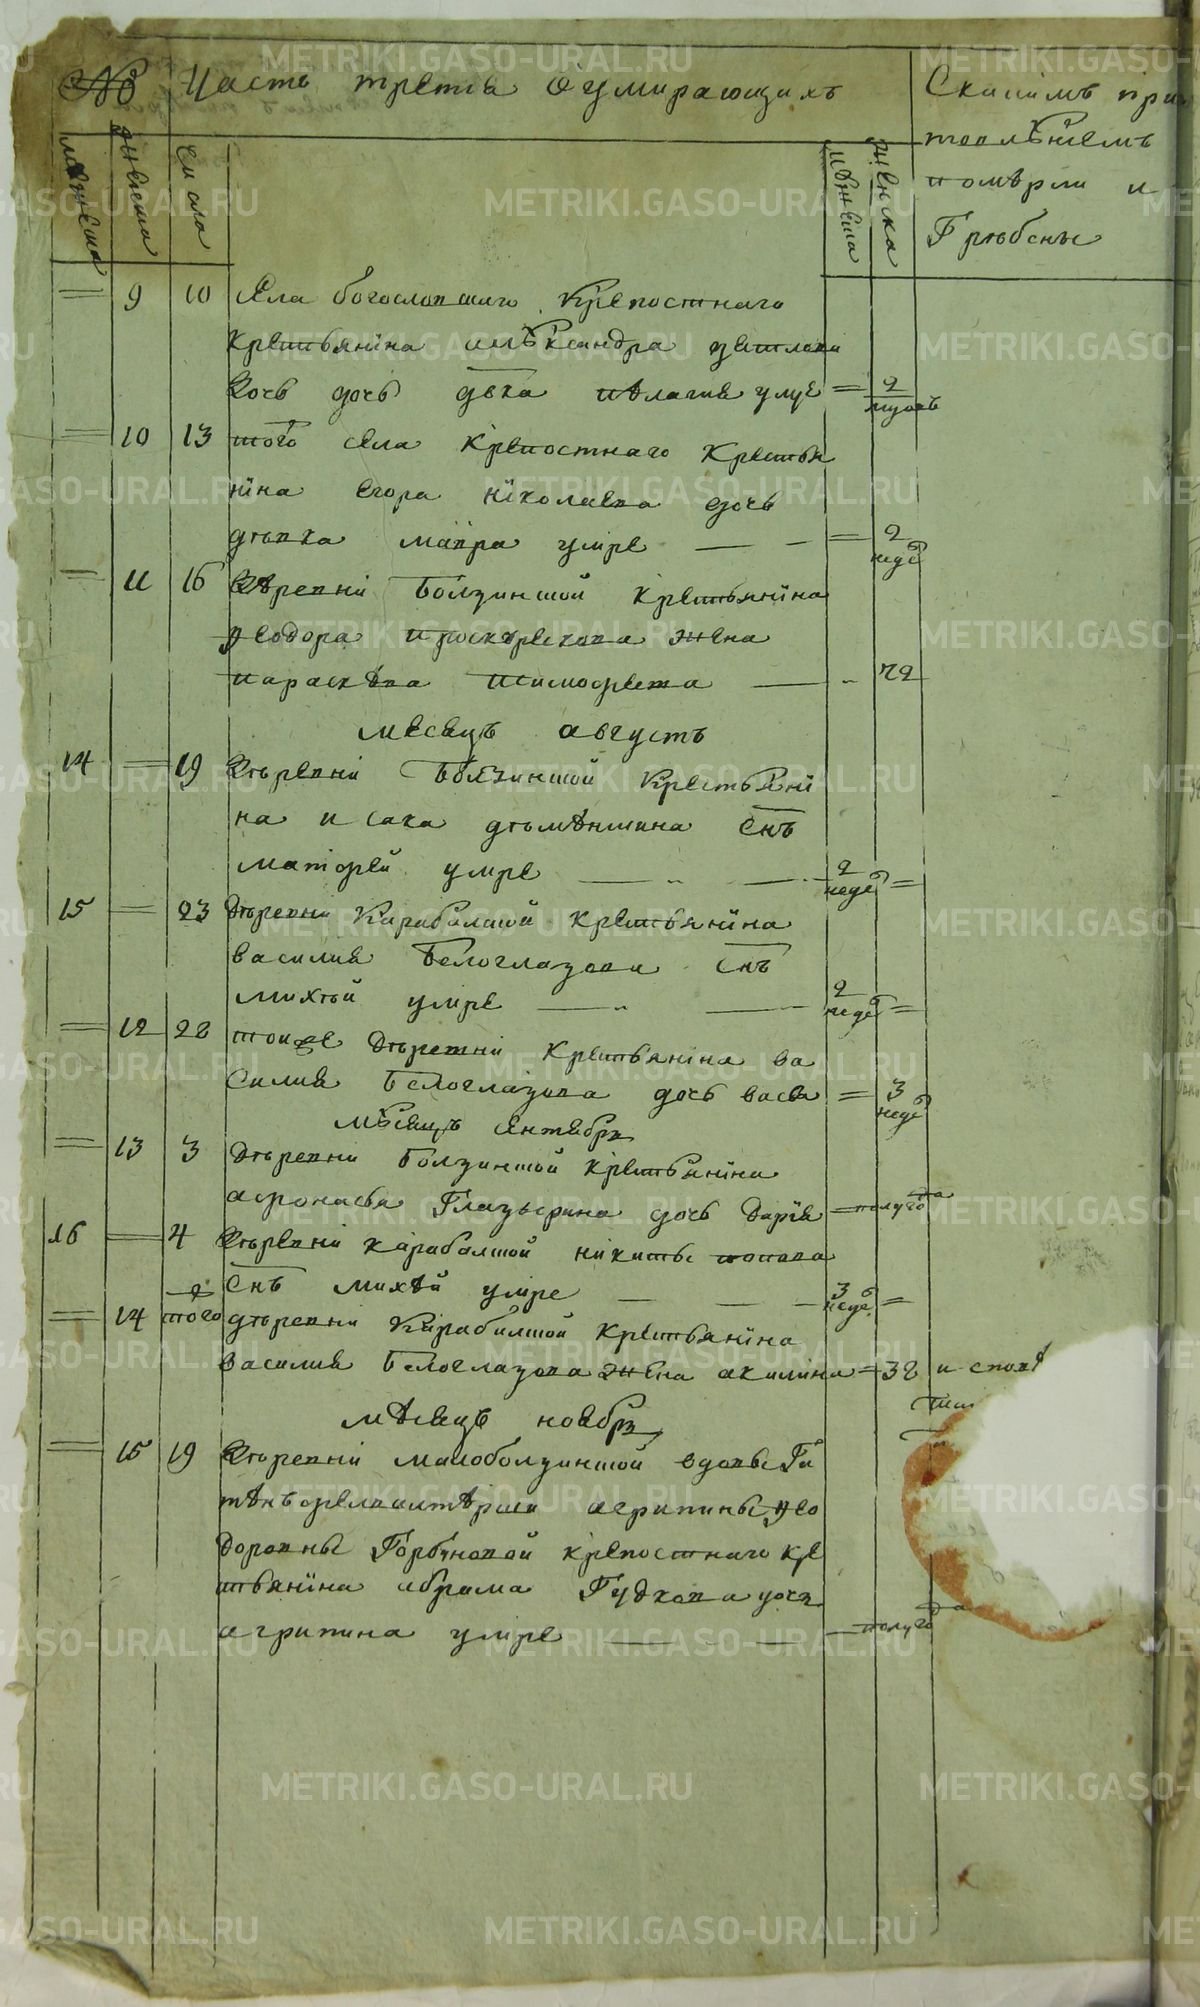 № Часть третїя о умирающихъ
Скакимъ при
готовлѣнїемъ
померли и
Грѣбены
мужеска женска числа
мужеска женска
= 9 10 села богословскаго крепостнаго
крестьянина алѣксандра
дочь девка пелагия умре = 2
= 10 13 того села крепостнаго крестья
нина егора николаева дочь
девка мавра умре — — = 2 неде
= 11 16 деревни Болзинской крестьянина
феодора проскурекова жена
параскева тимофеева — 72
месяцъ августъ
14 = 19 деревни Болзинской крестьяни
на исака снъ
матфей умре — „ — 2 неде =
15 = 23 деревни Карабалской крестьянина
василия Белоглазова снъ
михей умре — „ — 2 неде =
= 12 28 тоиже деревни крестьянина ва
силия Белоглазова дочь васса = 3 неде
мѣсяцъ сентябрь
= 13 3 деревни Болзинской крестьянина
афонасья Глазырина дочь дария = полугода
16 = 4 деревни карабалской никиты попова
снъ михей умре — — — 3 неде =
= 14 того деревни Карабалской крестьянина
василия Белоглазова жена акилина = 32 и спове
мѣсяцъ ноябрь
= 15 19 деревни малоболзинской вдовы
агрипины фео
доровны Горбуновой крепостнаго кре
стьянина абрама Гудкова дочь
агрипина умре — — — полугода
METRIKI.GASO-URAL.RU